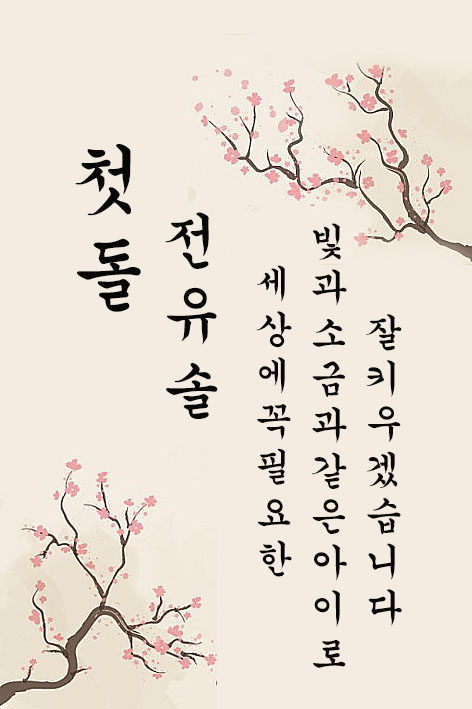 첫돌
전유솔
세상에꼭필요한
빛과소금과같은아이로
잘키우겠습니다